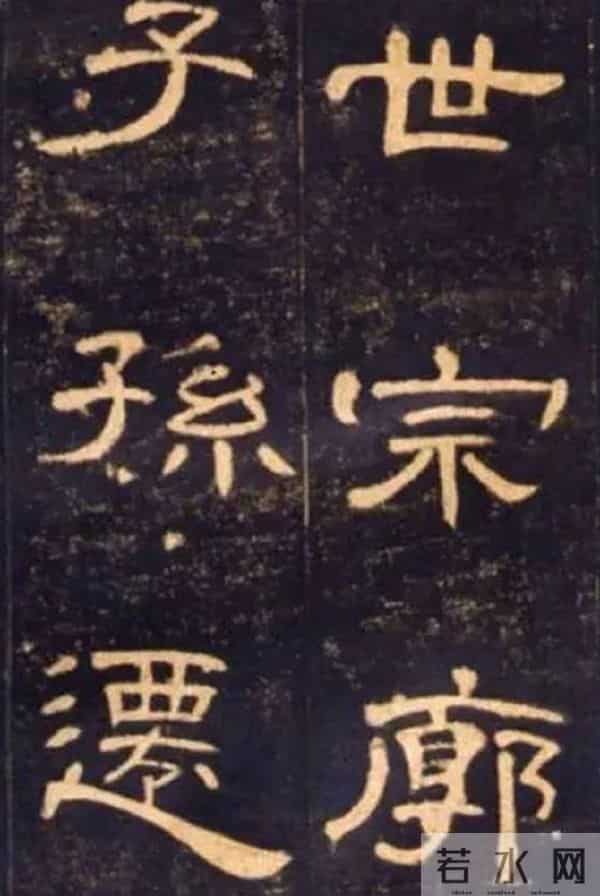 世宗廓
子孫遷
若水网